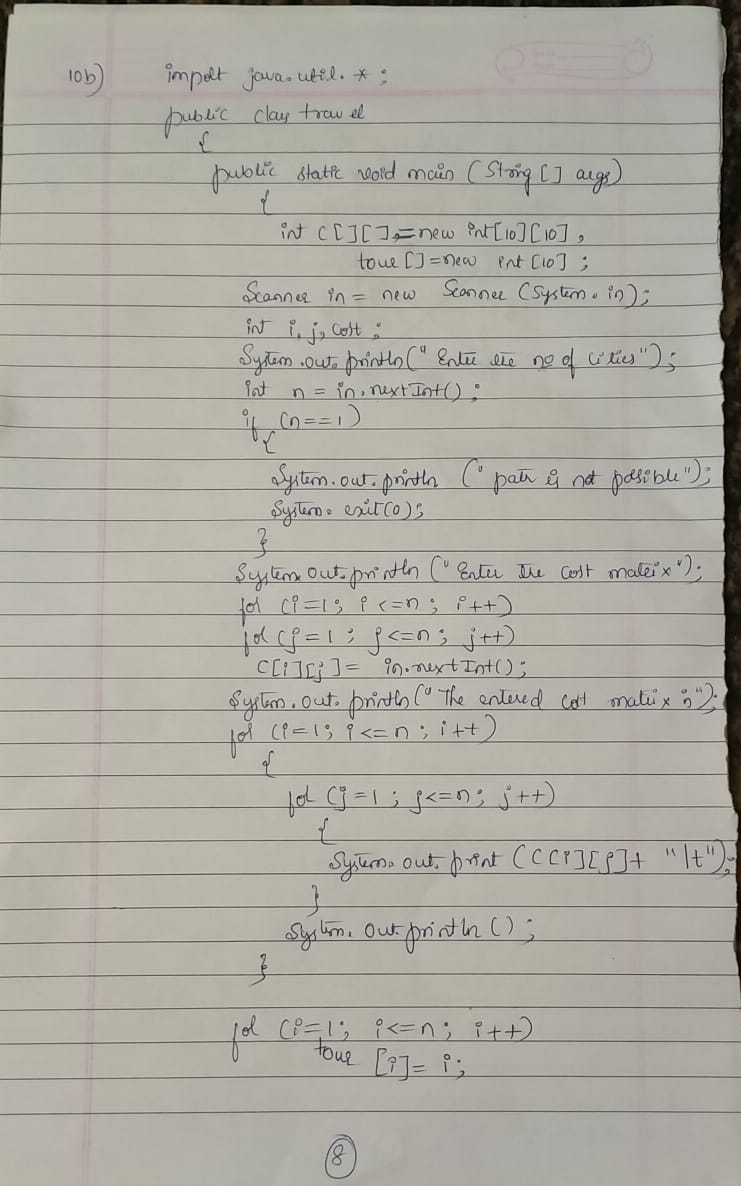 10b) import java.util.*;
public class travel
{
public static void main (String [] args)
{
int c[][]=new int[10][10],
tour []=new int [10];
Scanner in = new Scanner (System.in);
int i, j, cost;
System.out.println(" Enter the no of cities");
int n = in.nextInt();
if (n==1)
{
System.out.println (" path is not possible");
System.exit(0);
}
System.out.println (" Enter the cost matrix");
for (i=1; i<=n; i++)
for (j=1; j<=n; j++)
c[i][j]= in.nextInt();
System.out.println(" The entered cost matrix is");
for (i=1; i<=n; i++)
{
for (j=1; j<=n; j++)
{
System.out.print (c[i][j]+ "\t");
}
System.out.println ();
}
for (i=1; i<=n; i++)
tour [i]= i;
8